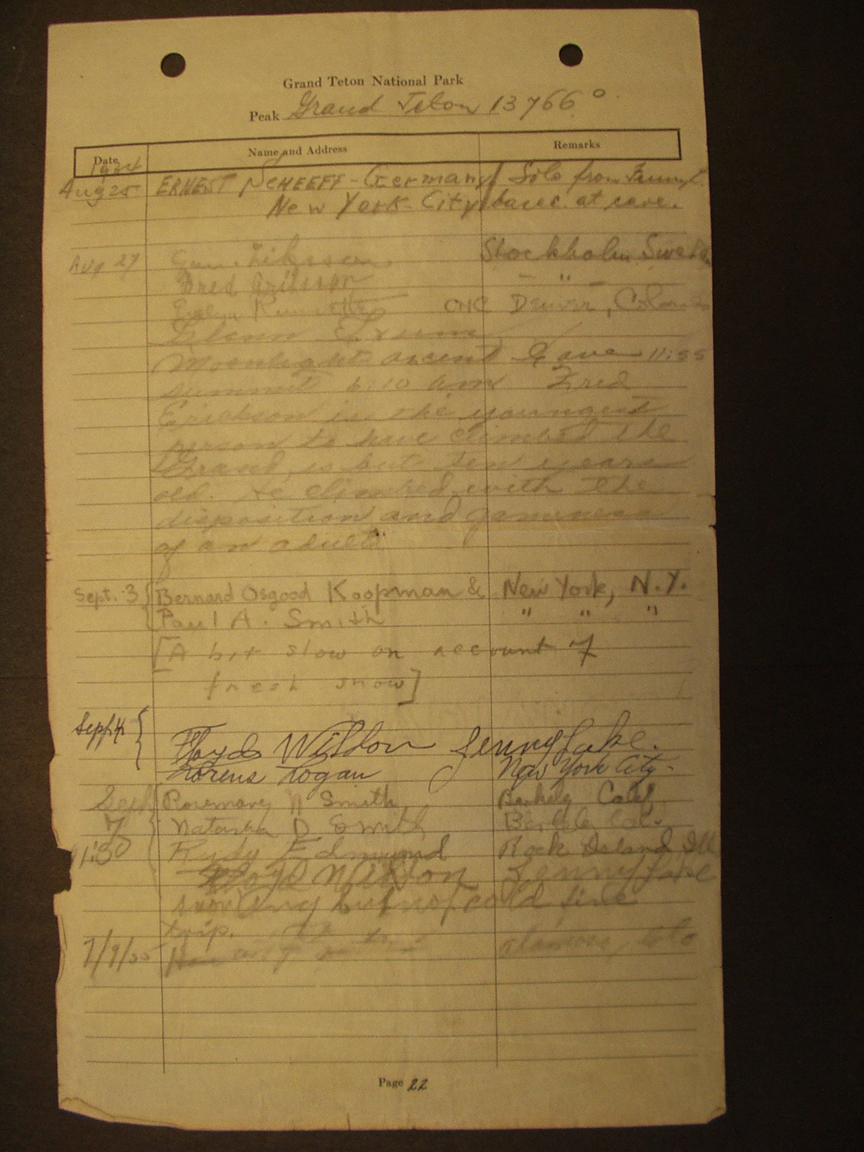 Grand Teton National Park
Peak Grand Teton 13766°
Date Name and Address Remarks
1934
Aug 25 ERNEST SCHEEFF - Germany Solo from Jenny L.
New York City at cave.
Aug 27 Stockholm Sweden
Fred "
Evelyn CMC Denver, Colorado
Glenn
Moonlight ascent Leave 11:55
summit 6:10 am Fred
Erickson is the youngest
person to have climbed the
Grand, is but ten years
old. He climbed with the
disposition and gameness
of an adult
Sept. 3 { Bernard Osgood Koopman & New York, N.Y.
Paul A. Smith " " "
[A bit slow on account of
fresh snow]
Sept 4 { Floyd Wilson Jenny Lake.
Lorens Logan New York City -
Sept Rosemary N Smith Berkely Calif
7 { Natasha D Smith Berkely Cal.
11:30 Rudy Edmund Rock Island Ill
Floyd Wilson Jenny Lake
snowing but not cold fine
trip.
7/9/35 Alamosa, Colo
Page 22